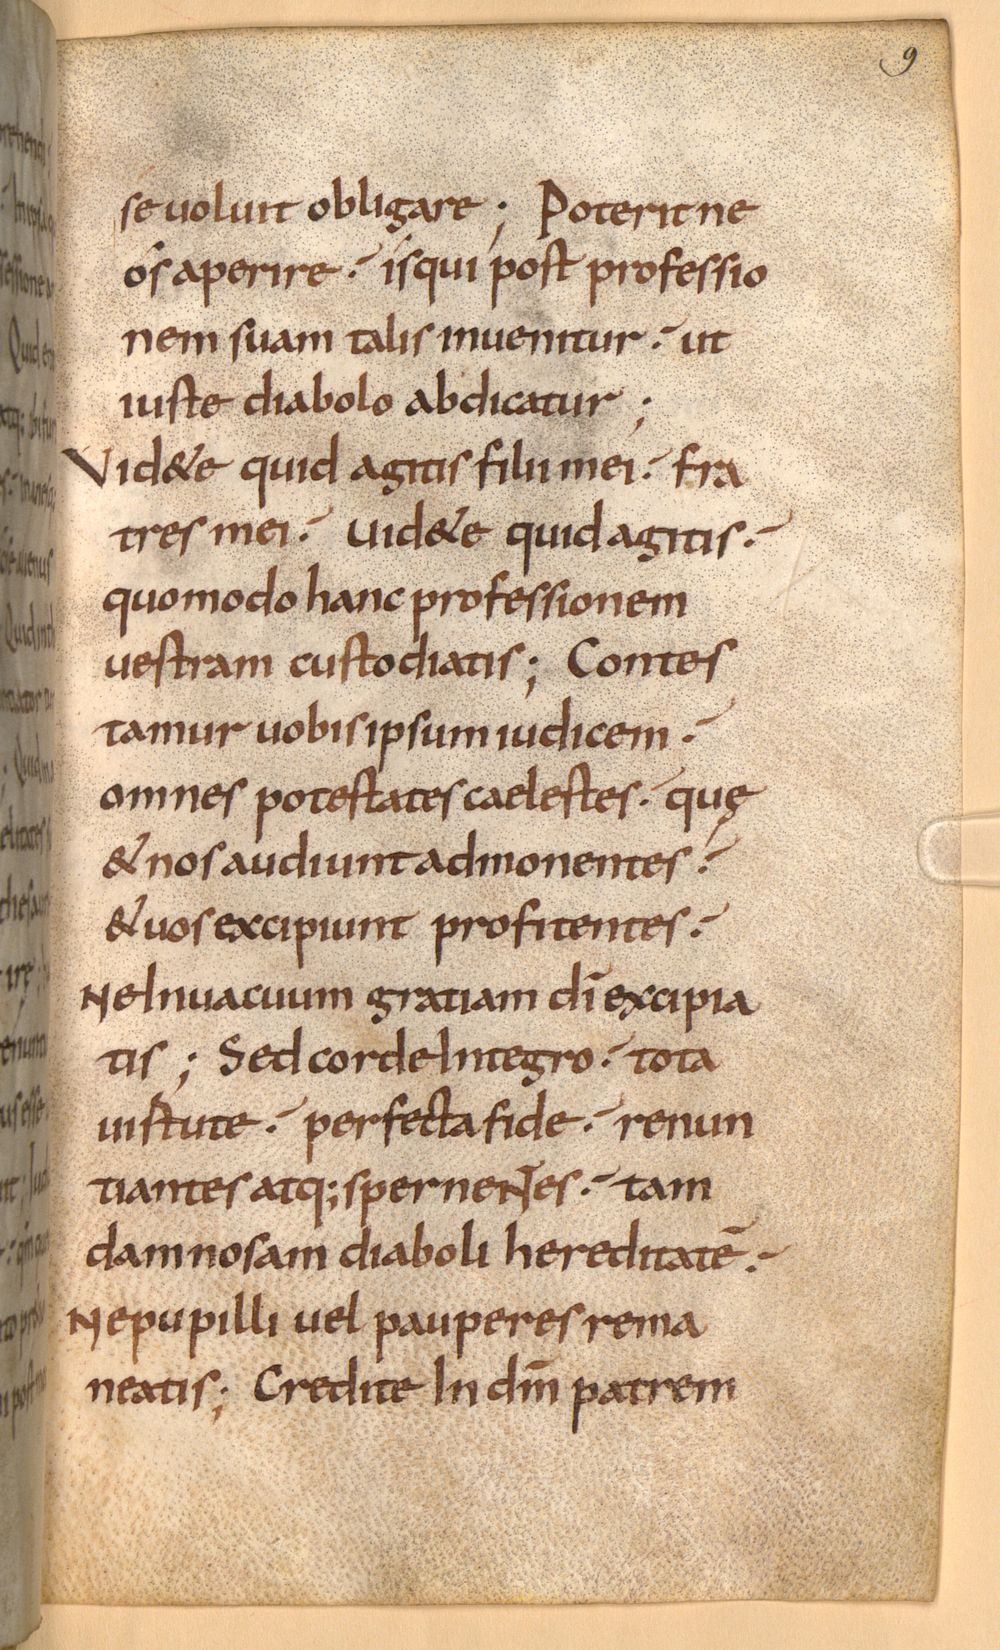 9
se uoluit obligare ; Poterit ne
ós aperire · ísqui post professio
nem suam talis inuenitur · ut
iuste diabolo abdicatur ;
Vid&e quid agitis filii mei · fra
tres mei · uid&e quid agitis ·
quomodo hanc professionem
uestram custodiatis ; Contes
tamur uobis ipsum iudicem ·
omnes potestates caelestes · quę
& nos audiunt admonentes ·
& uos excipiunt profitentes ·
Ne In uacuum gratiam dī excipia
tis ; Sed corde Integro · tota
uirtute · perfecta fide · renun
tiantes atq; spernentes · tam
damnosam diaboli hereditatē ·
Ne pupilli uel pauperes rema
neatis ; Credite In dm̄ patrem